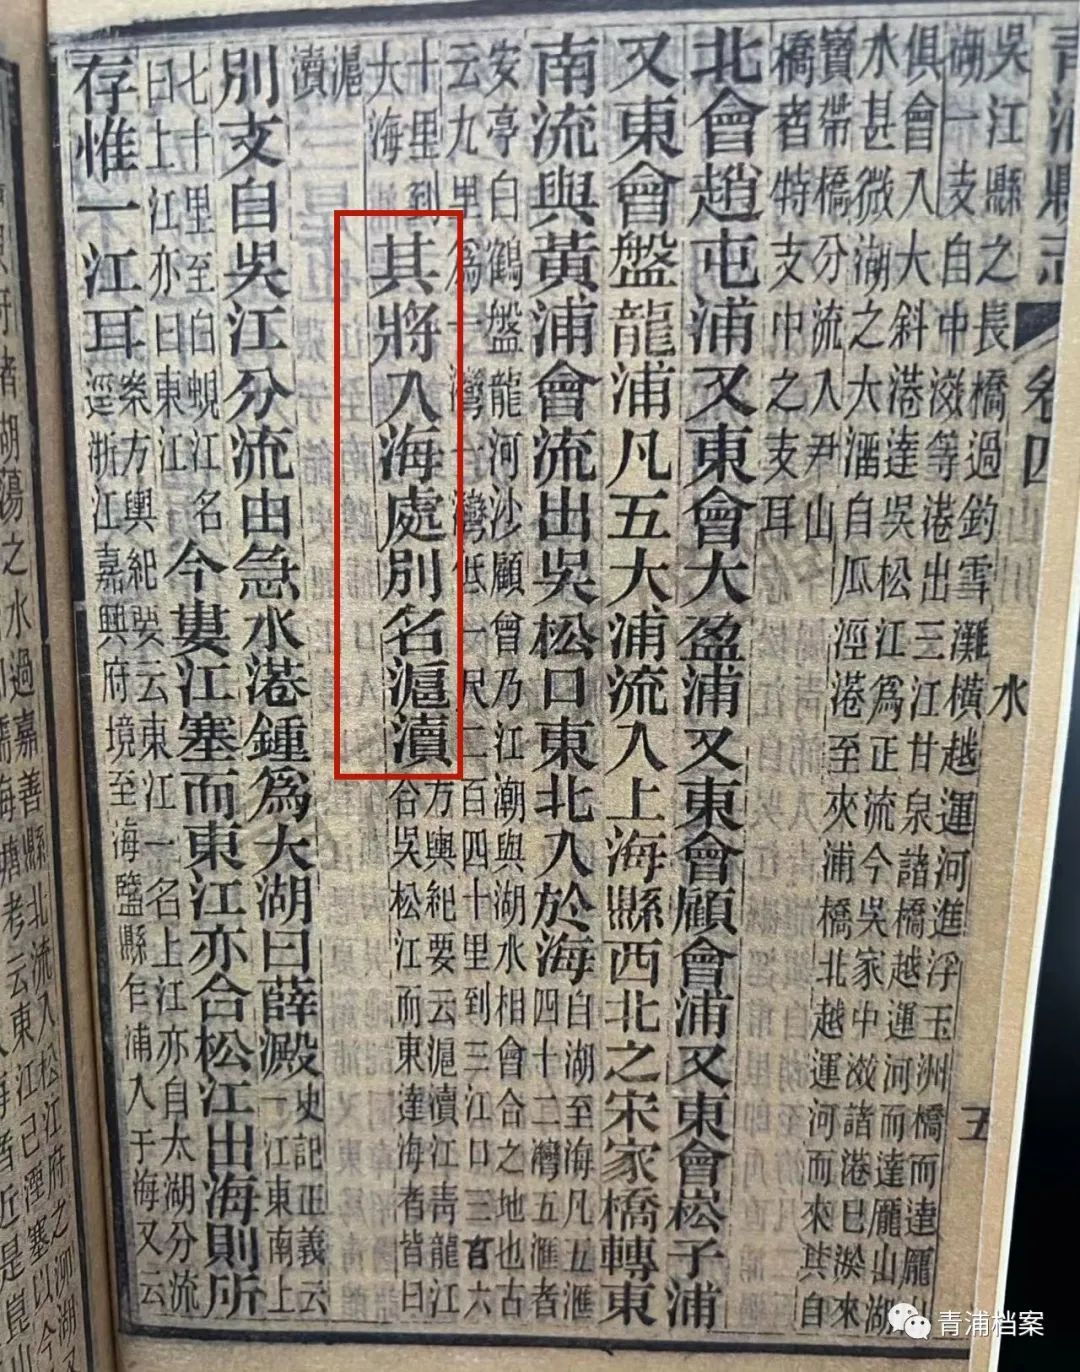 青浦縣志 卷四 水 五
吳江縣之長橋過釣雪灘橫越運河進浮玉洲橋而達龐
湖一支自中滧等港出三江甘泉諸橋越運河而達龐山湖
俱會入大斜港達吳松江爲正流今吳家中滧諸港已淤來
水甚微湖之大溜自瓜涇港至夾浦橋北越運河而來其自
寶帶橋分流入尹山
橋者特支中之支耳
北會趙屯浦又東會大盈浦又東會顧會浦又東會崧子浦
又東會盤龍浦凡五大浦流入上海縣西北之宋家橋轉東
南流與黃浦會流出吳松口東北入於海
白湖至海凡五滙
四十二灣五滙者
安亭白鶴盤龍河沙顧曾乃江潮與湖水相會合之地也古
云九里爲一灣一灣低一尺二百四十里到三江口三百六
十里到
大海
其將入海處別名滬瀆
方輿紀要云滬瀆江青龍江
合吳松江而東達海者皆曰
滬
瀆
別支自吳江分流由急水港鍾爲大湖曰薛澱
史記正義云
一江東南上
七十里至白蜆江名
曰上江亦曰東江
今婁江塞而東江亦合松江出海則所
存惟一江耳
棨方輿紀要云東江一名上江亦自太湖分流
逕浙江嘉興府境至海鹽縣乍浦入于海又云
者湖蕩之水過嘉善縣北流入松江府之泖湖
海塘考云東江已湮塞以今
青浦档案